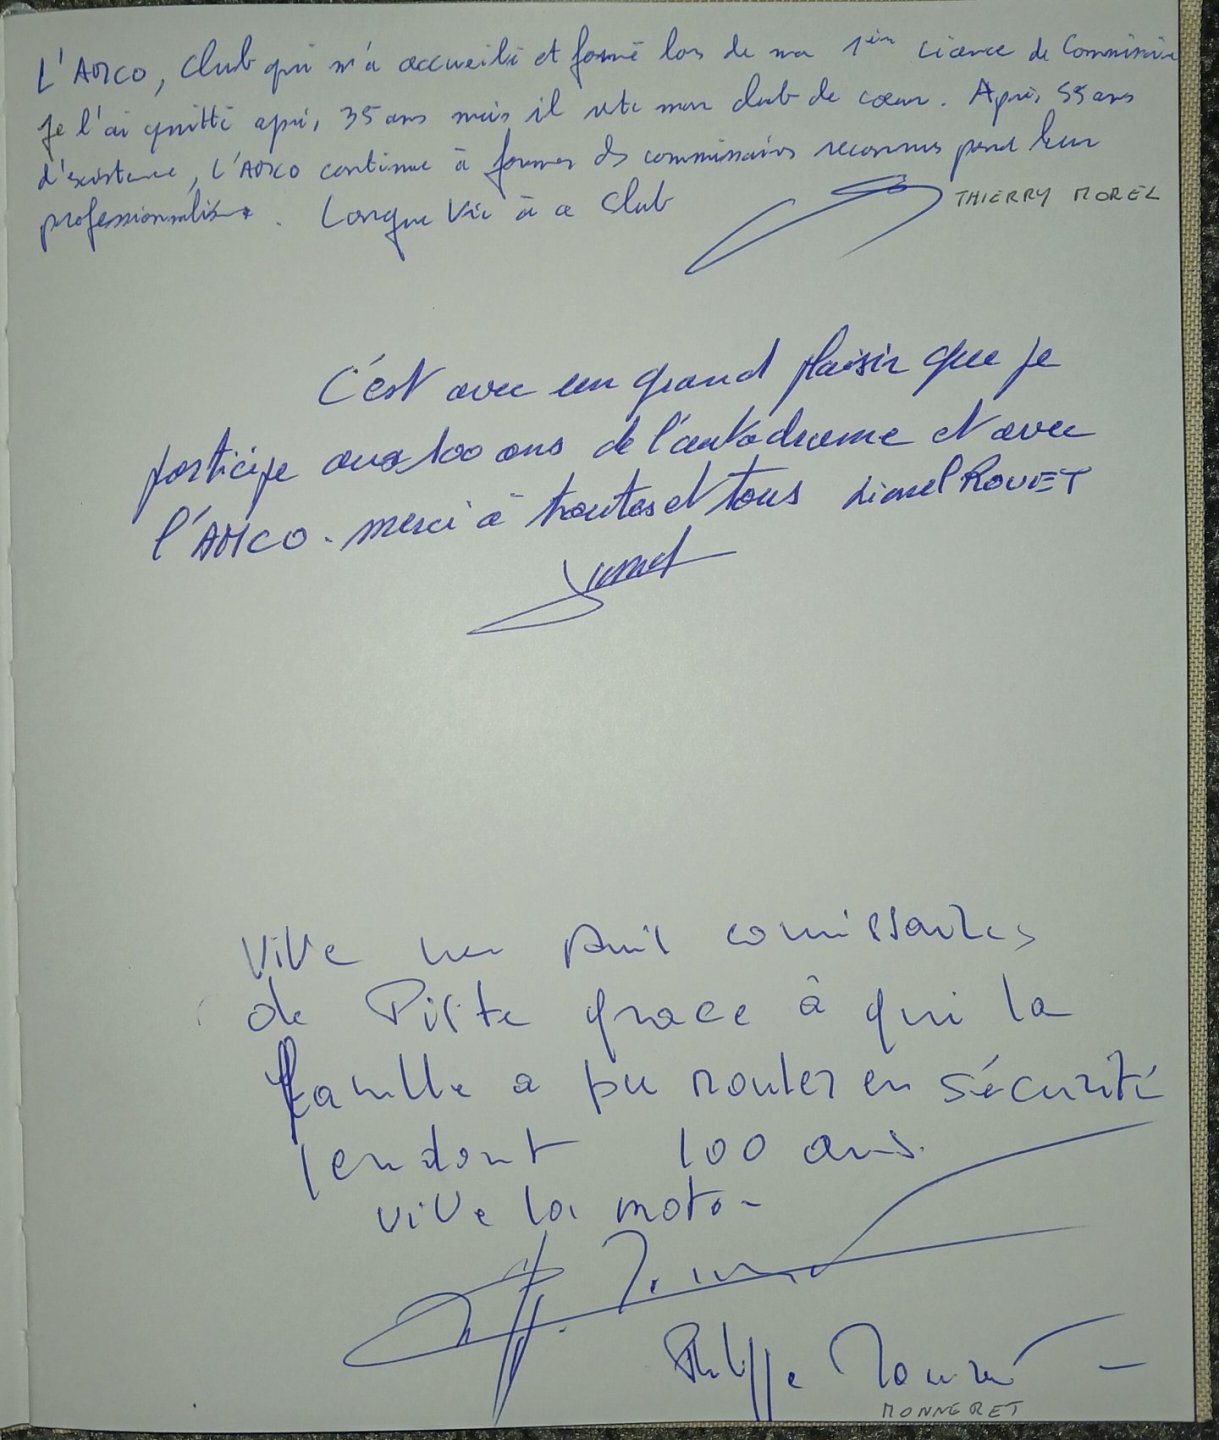 L'AMCO, club qui m'a accueilli et formé lors de ma 1ère licence de Commissaire
Je l'ai quitté après 35 ans mais il reste mon club de cœur. Après 55 ans
d'existence, L'AMCO continue à former des commissaires reconnus pour leur
professionnalisme. Longue Vie à ce Club
THIERRY MOREL
C'est avec un grand plaisir que je
participe aux 100 ans de l'autodrome et avec
l'AMCO. merci à toutes et tous Lionel ROUET
Vive les commissaires
de Piste grace à qui la
famille a pu rouler en sécurité
pendant 100 ans.
vive la moto -
Philippe Monneret
MONNERET